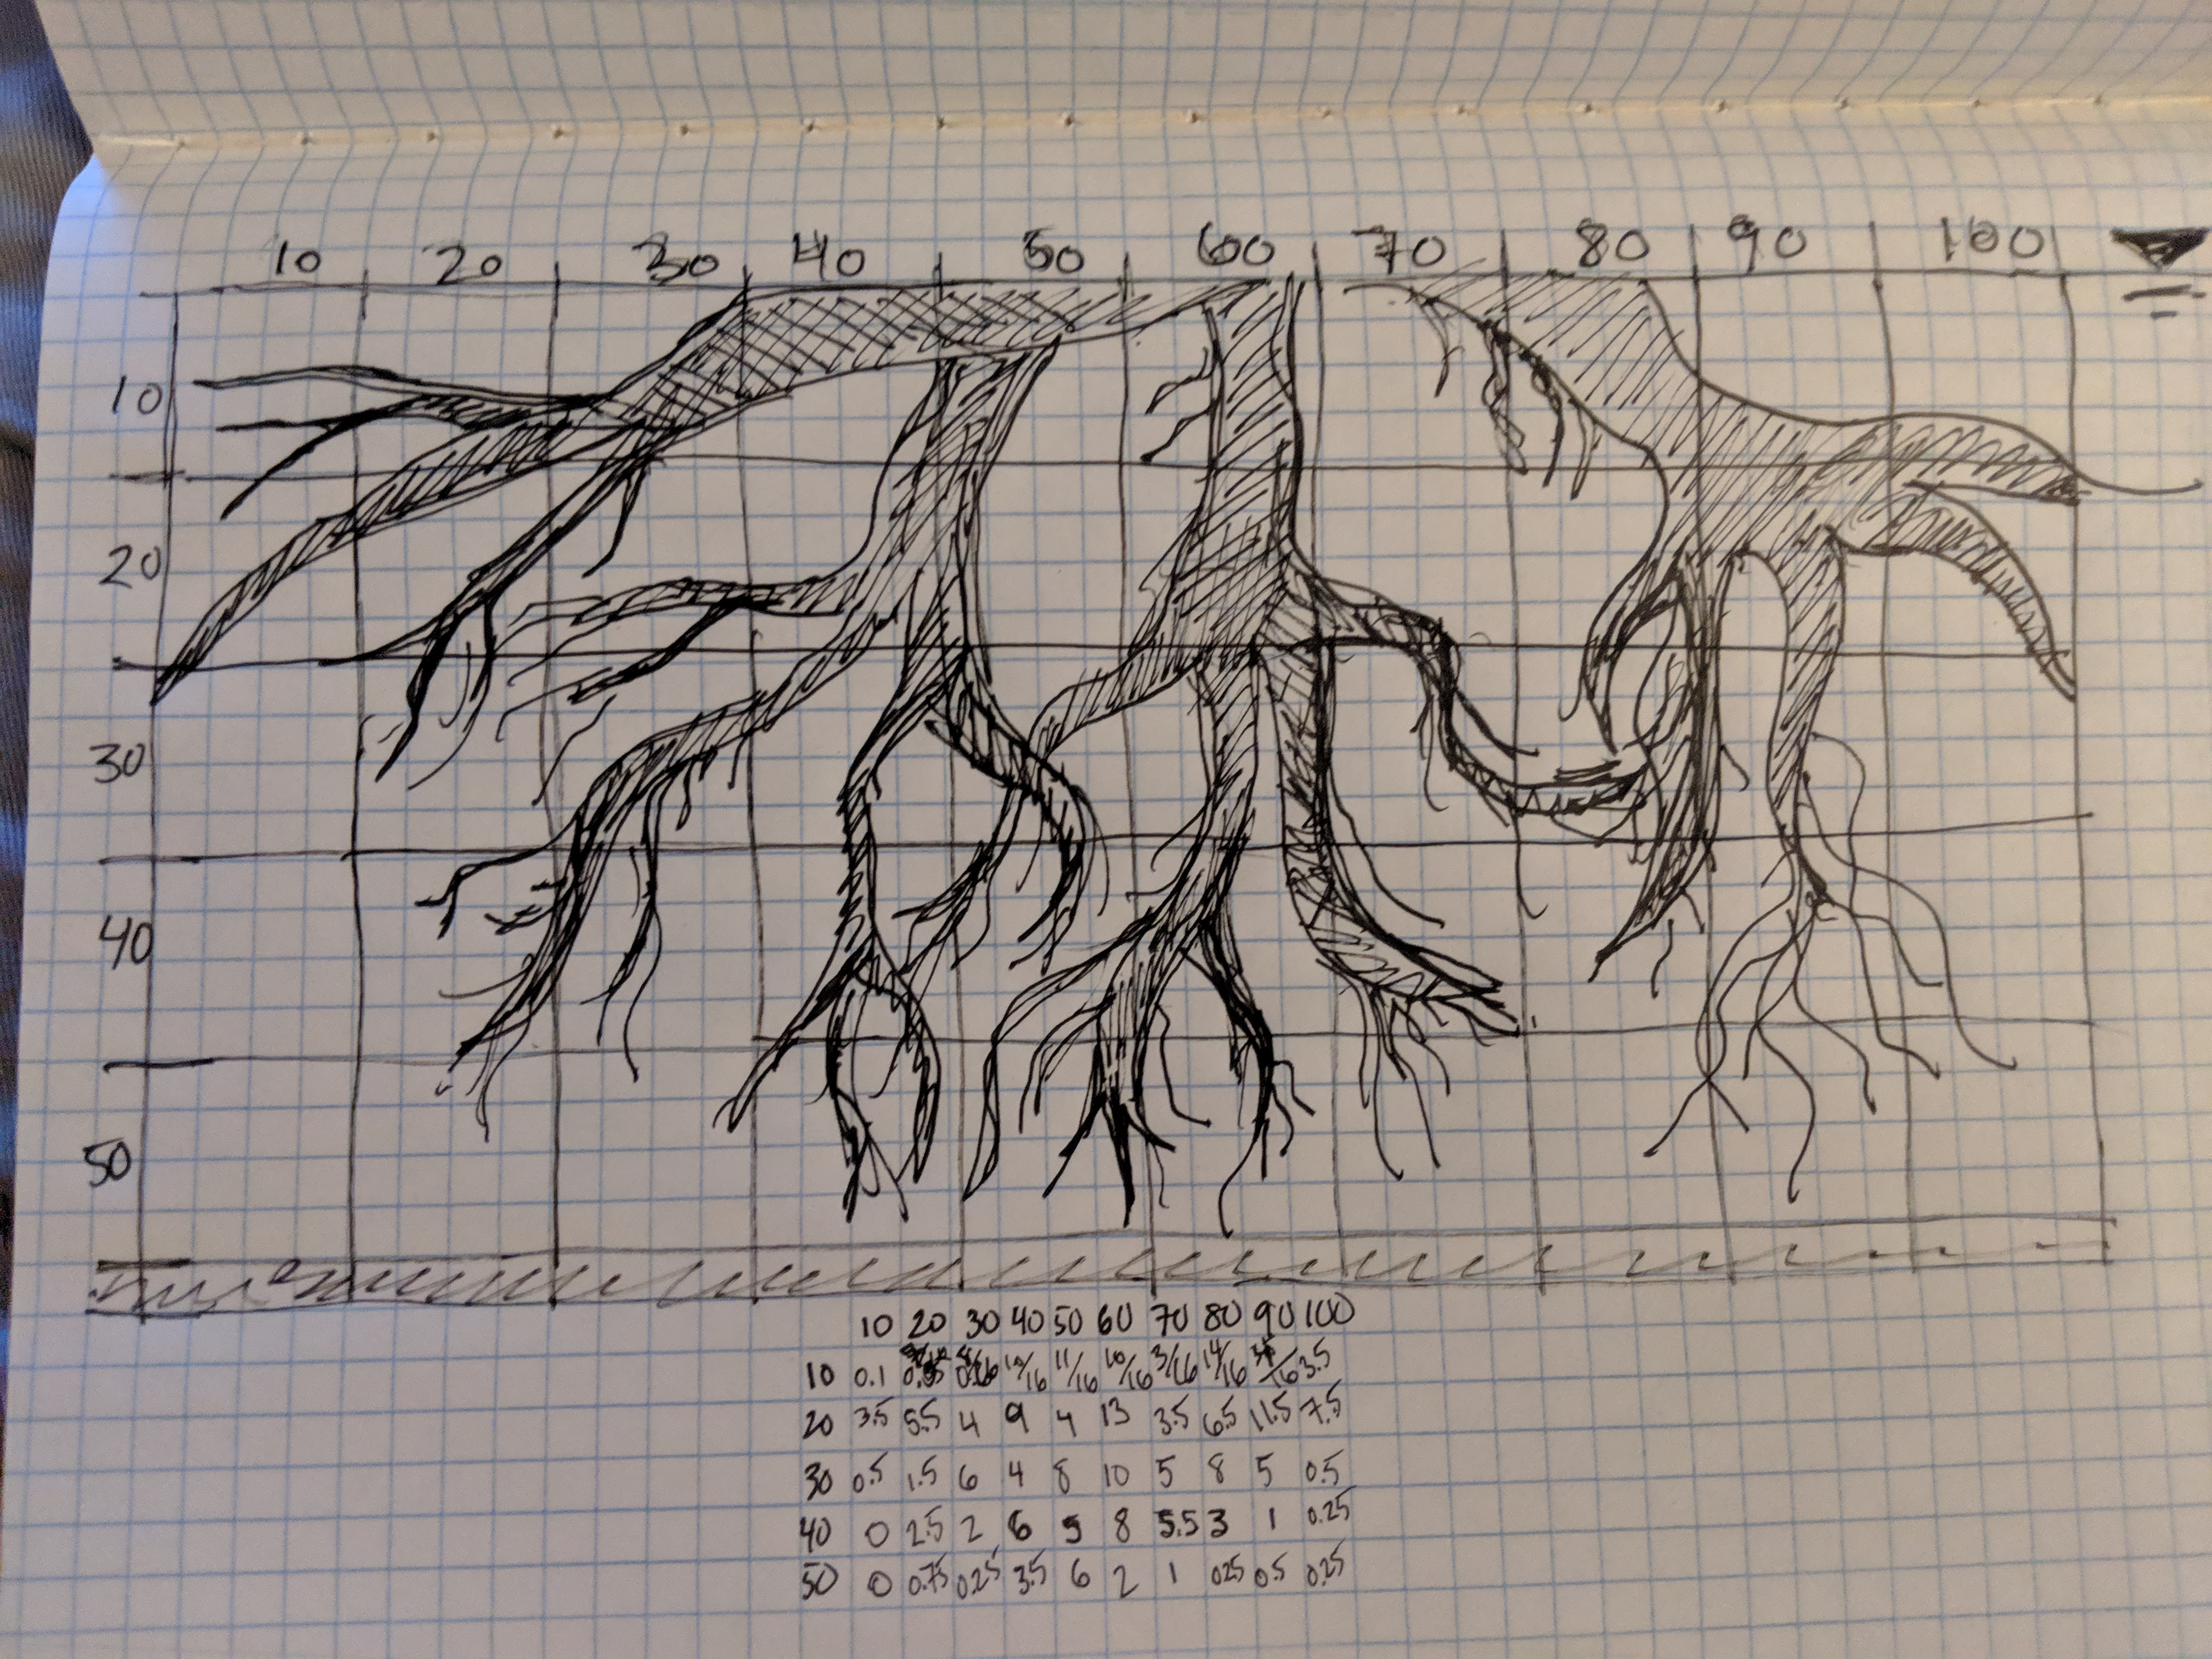 10 20 30 40 50 60 70 80 90 100
10
20
30
40
50
10 20 30 40 50 60 70 80 90 100
10 0.1 10/16 11/16 10/16 3/16 14/16 3.5
20 3.5 5.5 4 9 4 13 3.5 6.5 11.5 7.5
30 0.5 1.5 6 4 8 10 5 8 5 0.5
40 0 2.5 2 6 5 8 5.5 3 1 0.25
50 0 0.75 0.25 3.5 6 2 1 025 0.5 0.25